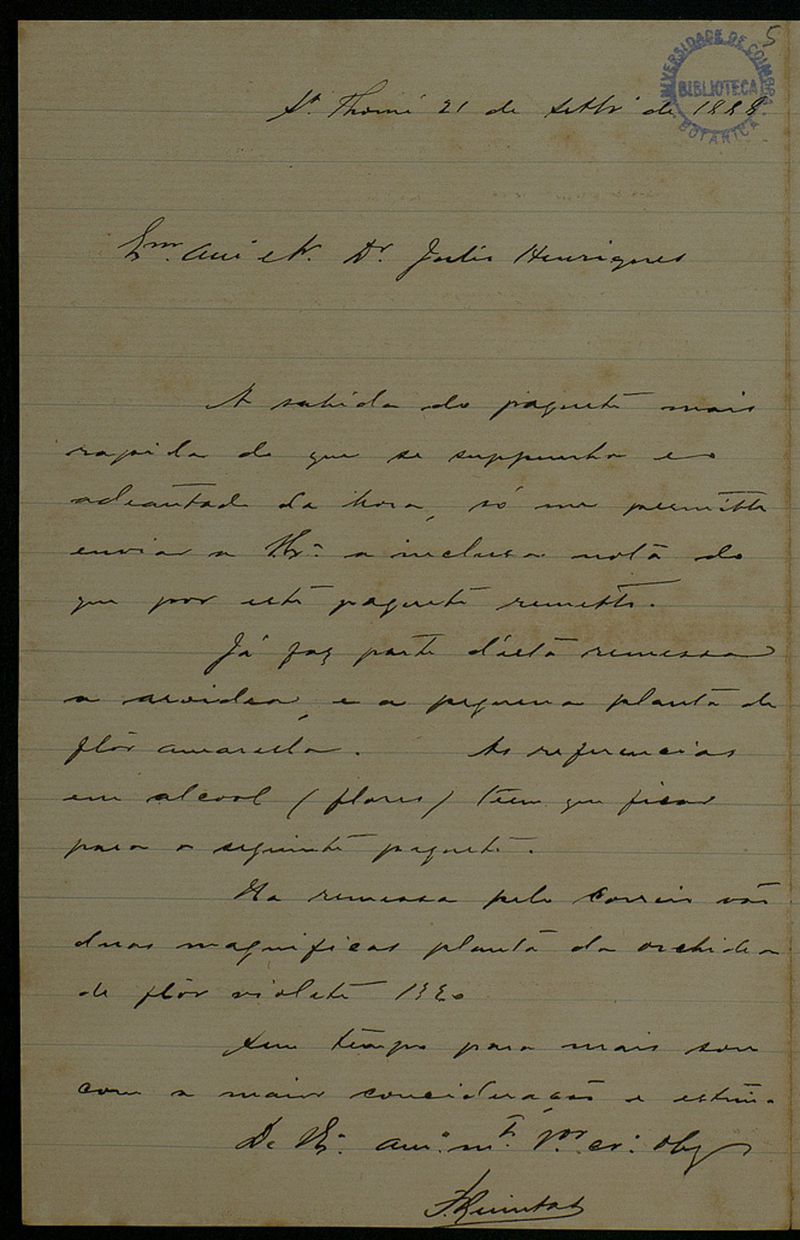 5
UNIVERSIDADE DE COIMBRA
BIBLIOTECA
BOTANICA
Sr. Thomé 21 de Setbr de 1888.
Exmo. Amº e Sr. Dr. Julio Henriques
A sahida do paquete mais
rapida do que se suppunha e o
adeantado da hora, só me permitte
enviar a V. Exª a inclusa nota do
que por este paquete remetto.
Já faz parte d'esta remessa
a aroidea, e a pequena planta de
flôr amarella. As referencias
em alcool (flores) teem que ficar
para o seguinte paquete.
Na remessa pelo correio vão
duas magnificas planta da orchidea
de flôr violete
Sem tempo para mais sou
com a maior concideração e estima
De V. Exª. amº. mtº vor. crº. obgº
F. Quintas